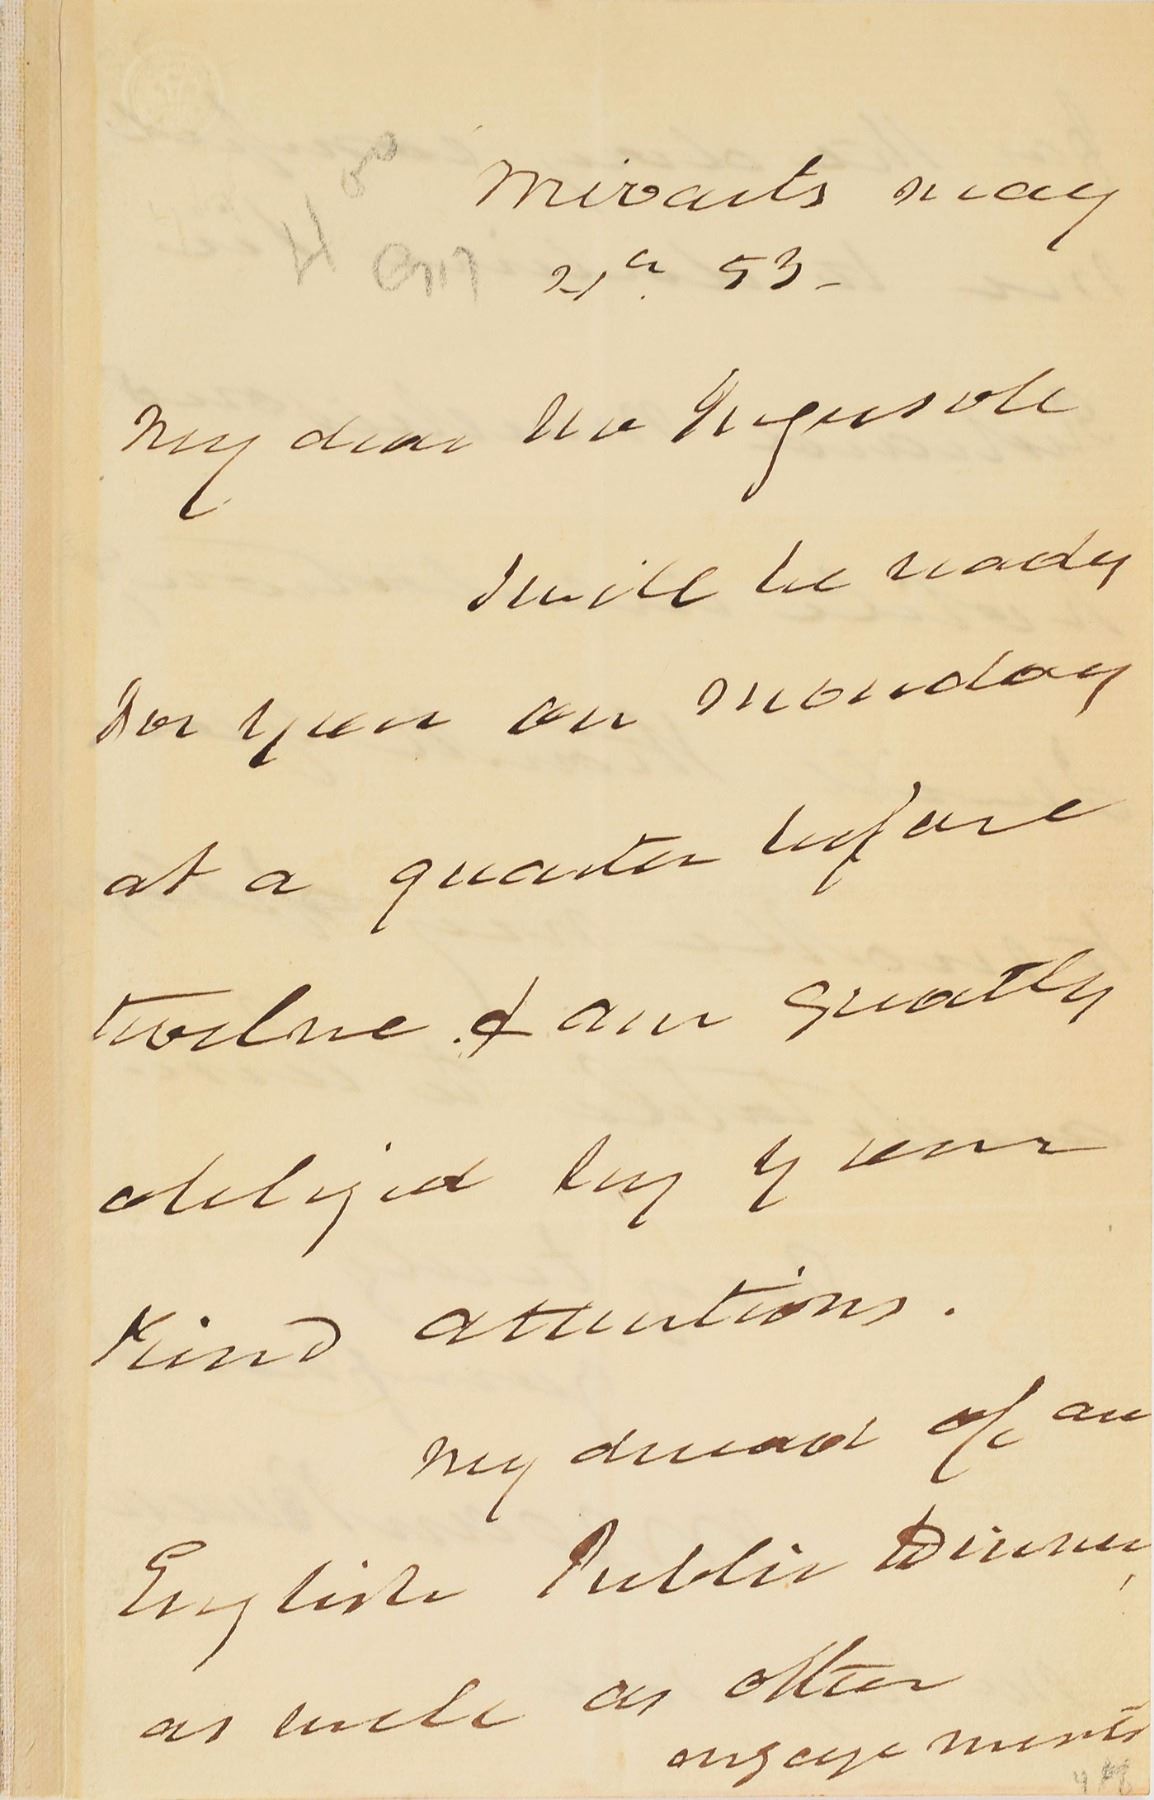 Mivarts May
21st. 53-
My dear Mr Ingersoll
I will be ready
for you on Monday
at a quarter before
twelve. & am greatly
obliged by your
Kind attentions.
My dread of an
English Public Dinner,
as well as other
engagements